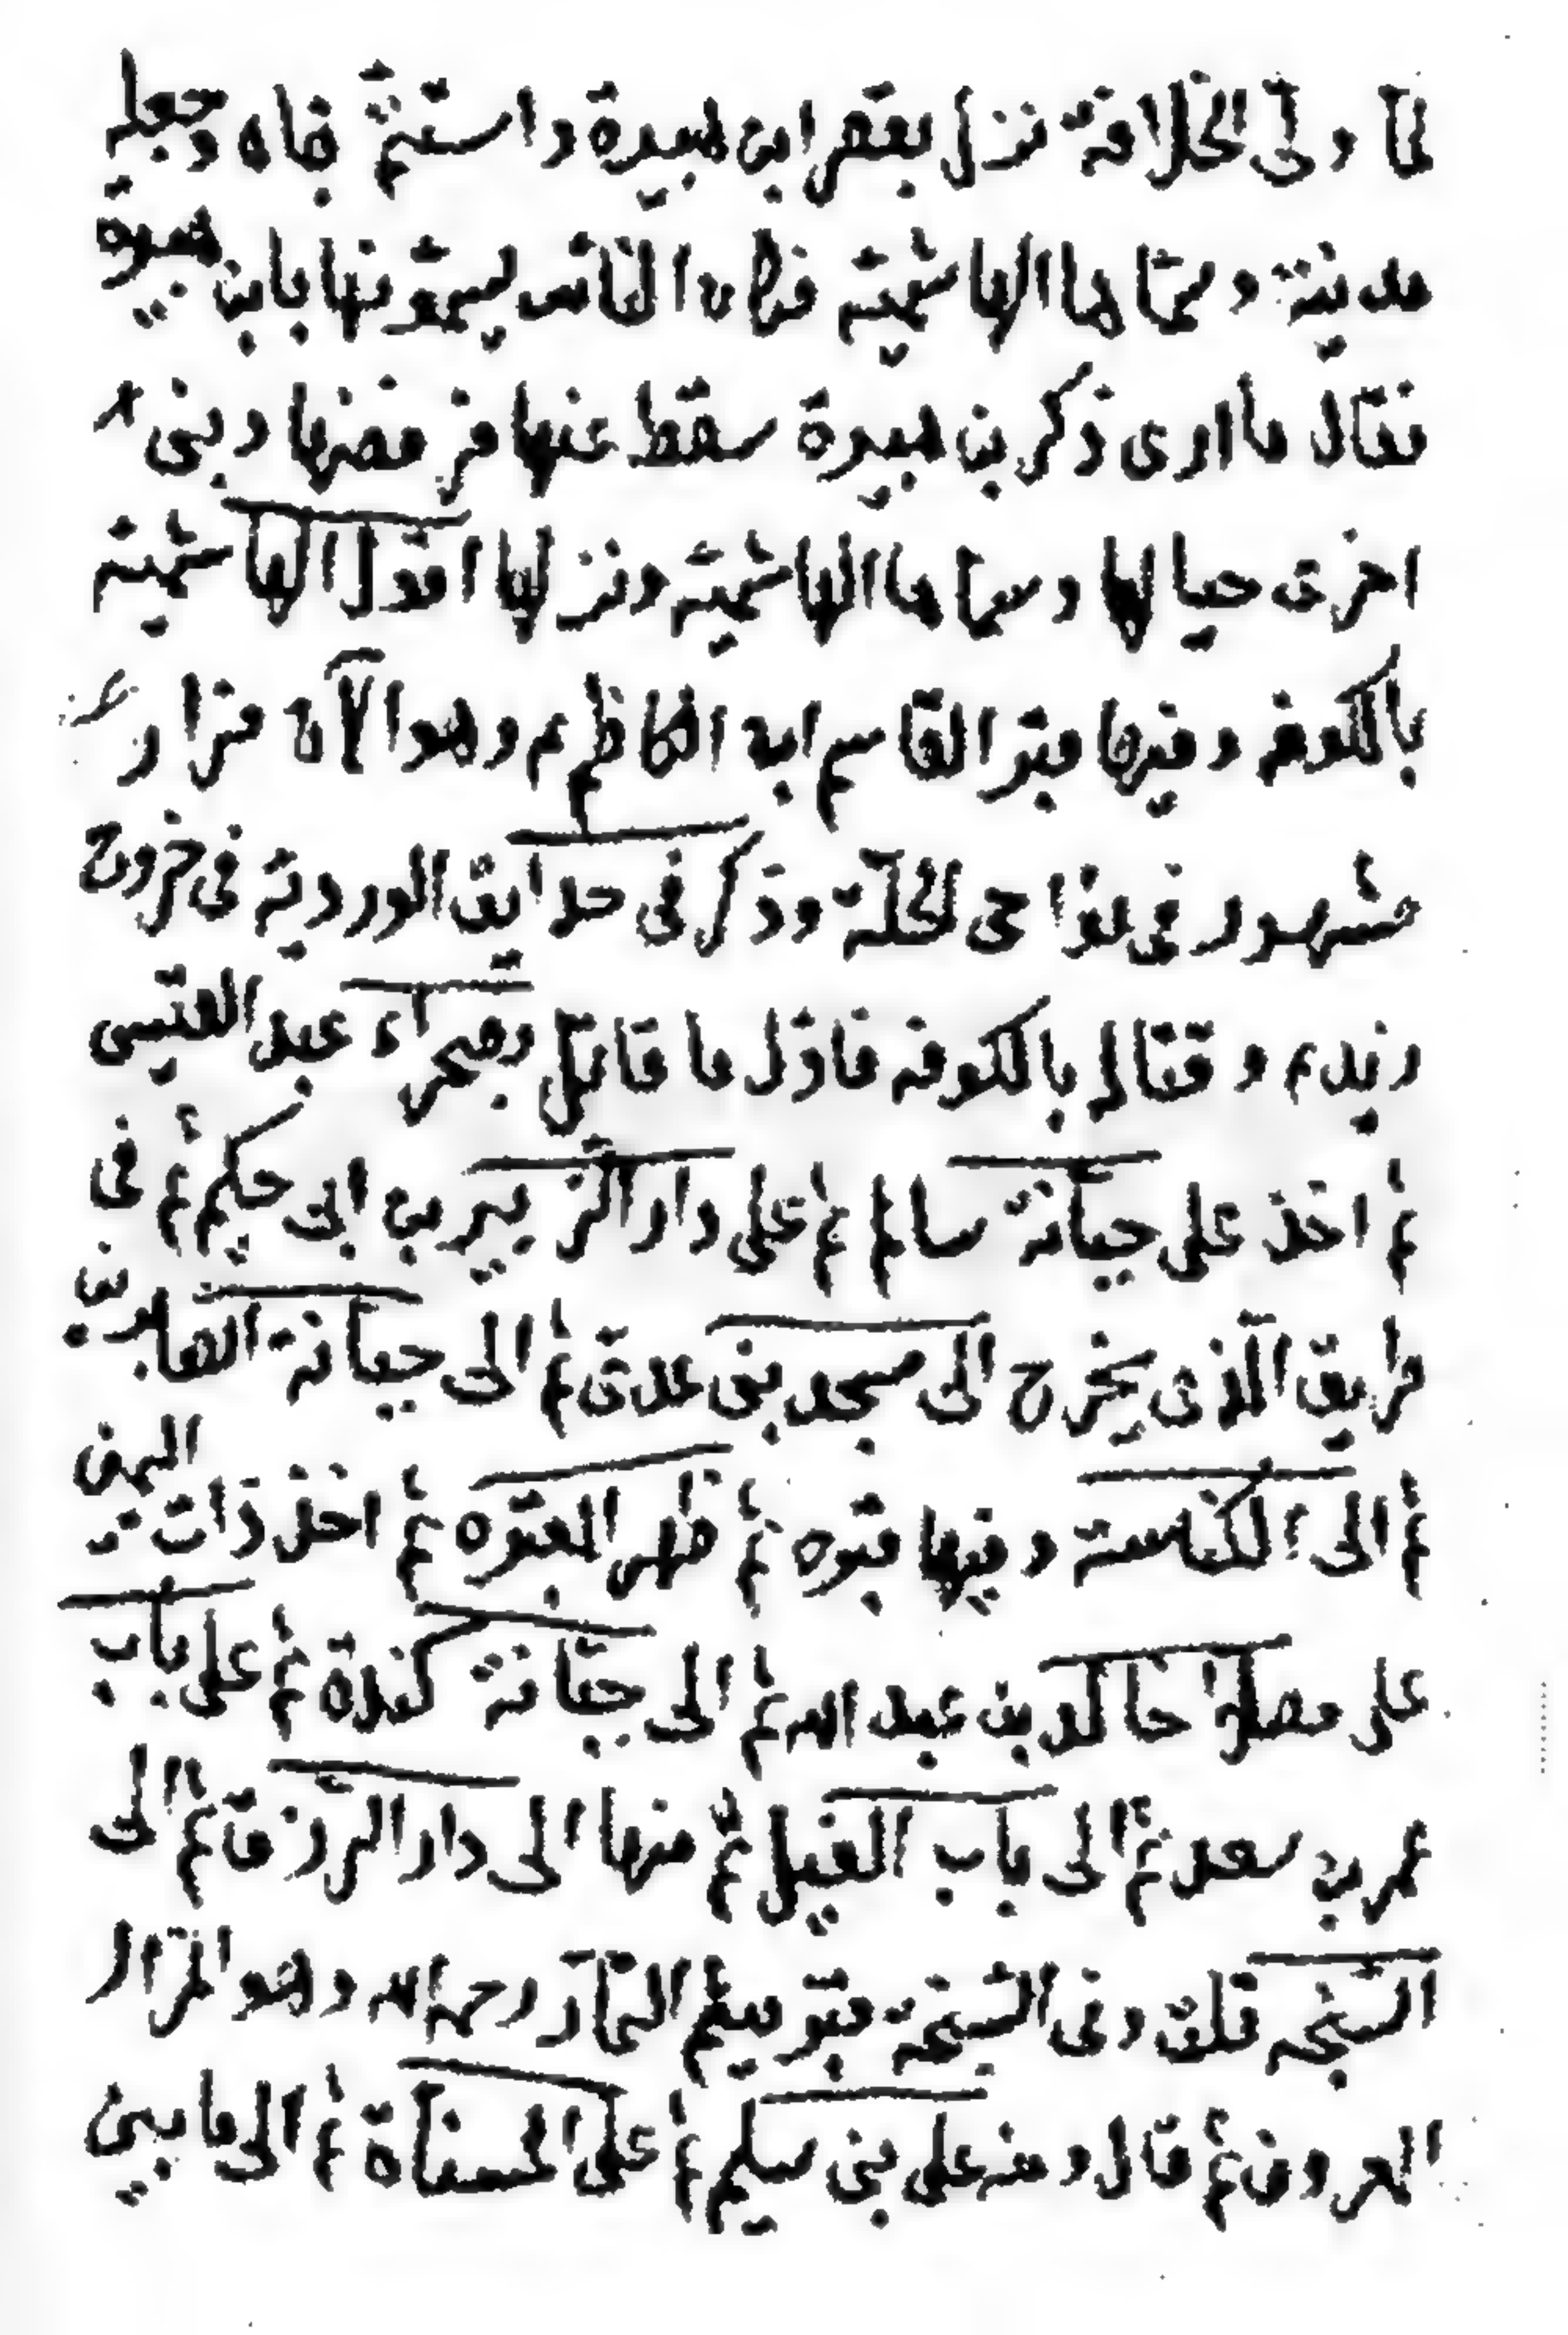 لمّا ولّى الخلافة نزل بقصر ابن هبيرة واستتمّ بناه وجعله
مدينة وسمّاها الهاشميّة فكان الناس يسمّونها بابن هبيرة
فقال ما ارى ذكر بن هبيرة سقط عنها فرفضها وبنى
اخرى حيالها وسماها الهاشميّة ونزلها اقول الهاشميّة
بالكوفه وفيها قبر القاسم ابن الكاظم ع وهو الآن مزار
مشهور في نواحى الحلّة وذكر في حدايق الورديّة في خروج
زيد ع وقتاله بالكوفه فاوّل ما قاتل بصحراء عبد القيس
ثم اخذ على جبّانة سالم ثم على دار الزبير بن ابى حكيم ثم فى
طريق الّذى يخرج الى مسجد بنى عدىّ ثم الى جبّانة الصايديين
ثم الى الكناسة وفيها قبره ثم ظهر المقبره ثم اخذ ذات اليمين
على مصلى خالد بن عبد الله ثم الى جبّانة كندة ثم على باب
عمر بن سعد ثم الى باب الفيل ثمّ منها الى دار الرّزق ثم الى
السّبخه قلت وفى السّبخة قبر ميثم التمّار رحمه الله وهو المزار
المعروف ثم قال ومنه على بنى سليم ثم على المسنّاة ثم الى ما بين